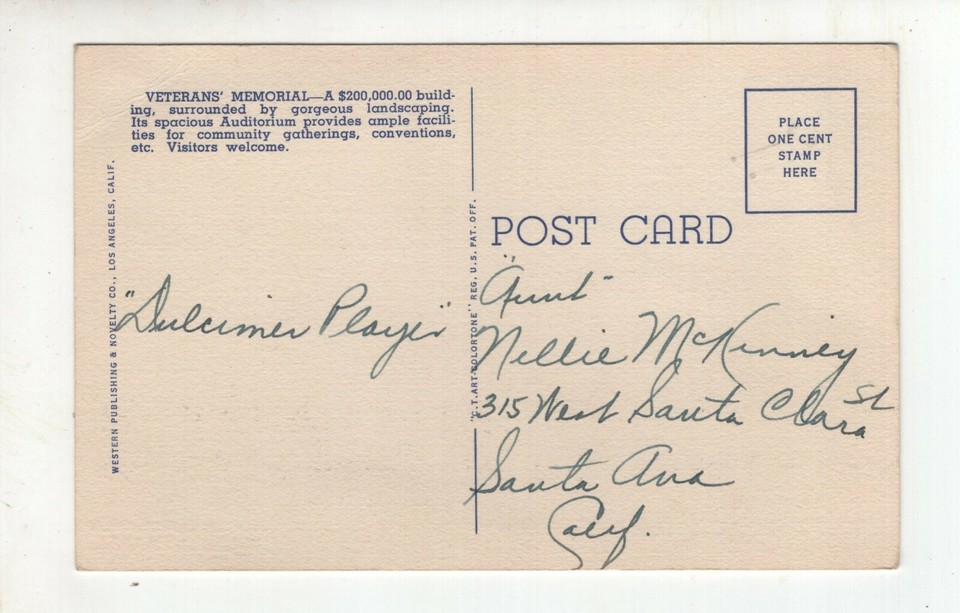 VETERANS' MEMORIAL—A $200,000.00 build-
ing, surrounded by gorgeous landscaping.
Its spacious Auditorium provides ample facili-
ties for community gatherings, conventions,
etc. Visitors welcome.
WESTERN PUBLISHING & NOVELTY CO., LOS ANGELES, CALIF.
"Dulcimer Player"
"C.T. ART-COLORTONE" REG. U.S. PAT. OFF.
PLACE
ONE CENT
STAMP
HERE
POST CARD
"Aunt"
Nellie McKinney
315 West Santa Clara St
Santa Ana
Calif.